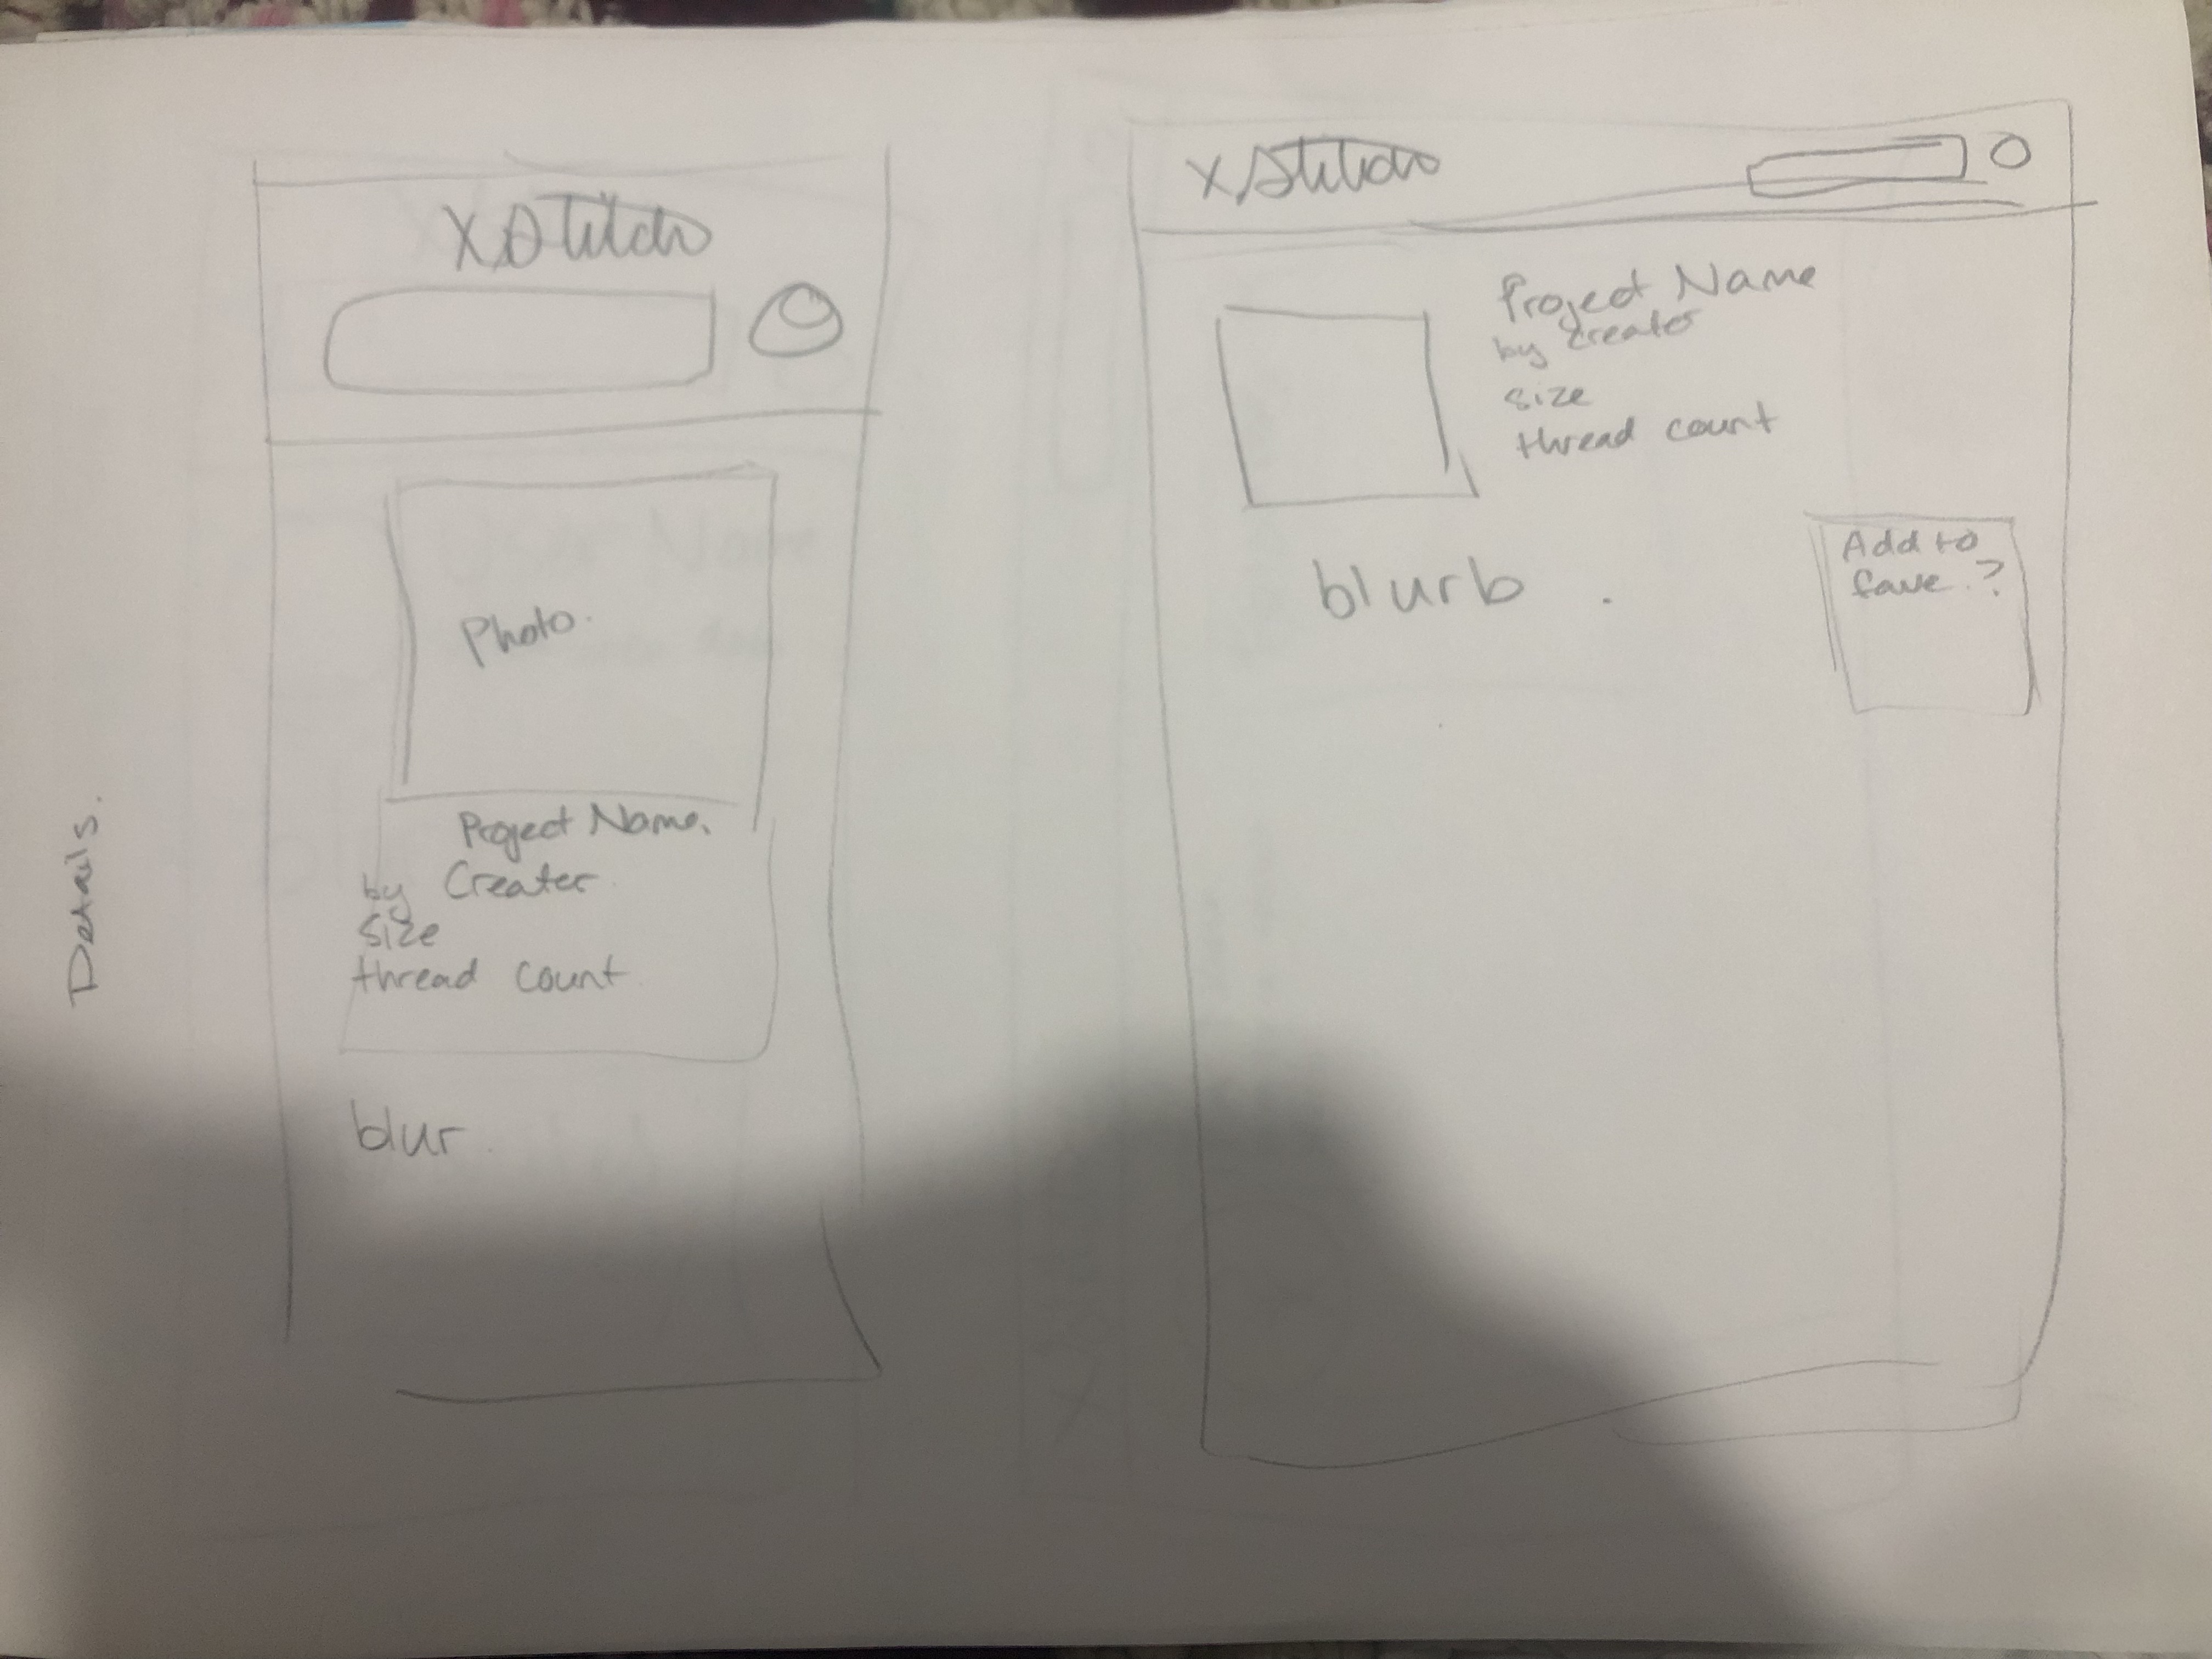 Details.
XStitch
Photo.
Project Name.
by Creater
size
thread count
blur.
XStitch
Project Name
by creater
size
thread count
blurb .
Add to
fave.?